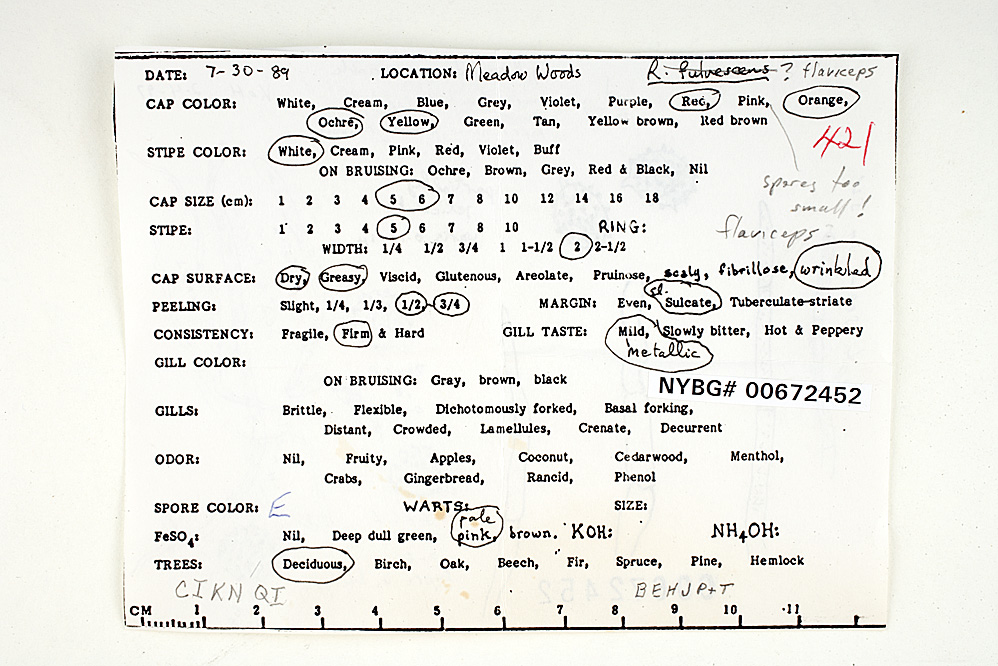 DATE: 7-30-89 LOCATION: Meadow Woods R. fulvescens ? flaviceps
CAP COLOR: White, Cream, Blue, Grey, Violet, Purple, Red, Pink, Orange,
Ochre, Yellow, Green, Tan, Yellow brown, Red brown
421
STIPE COLOR: White, Cream, Pink, Red, Violet, Buff
ON BRUISING: Ochre, Brown, Grey, Red & Black, Nil
spores too
small!
CAP SIZE (cm): 1 2 3 4 5 6 7 8 10 12 14 16 18
STIPE: 1 2 3 4 5 6 7 8 10 RING:
flaviceps
WIDTH: 1/4 1/2 3/4 1 1-1/2 2 2-1/2
CAP SURFACE: Dry, Greasy, Viscid, Glutenous, Areolate, Pruinose, scaly, fibrillose, wrinkled
PEELING: Slight, 1/4, 1/3, 1/2, 3/4 MARGIN: Even, sl. Sulcate, Tuberculate-striate
CONSISTENCY: Fragile, Firm & Hard GILL TASTE: Mild, Slowly bitter, Hot & Peppery
metallic
GILL COLOR:
ON BRUISING: Gray, brown, black
NYBG# 00672452
GILLS: Brittle, Flexible, Dichotomously forked, Basal forking,
Distant, Crowded, Lamellules, Crenate, Decurrent
ODOR: Nil, Fruity, Apples, Coconut, Cedarwood, Menthol,
Crabs, Gingerbread, Rancid, Phenol
SPORE COLOR: E WARTS: SIZE:
pale
FeSO4: Nil, Deep dull green, pink, brown. KOH: NH4OH:
TREES: Deciduous, Birch, Oak, Beech, Fir, Spruce, Pine, Hemlock
CIKN QI BEHJP+T
CM 1 2 3 4 5 6 7 8 9 10 11